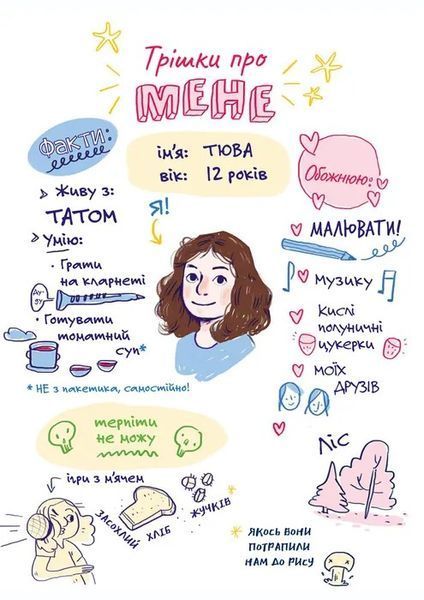 Трішки про
МЕНЕ
ім'я: ТЮВА
вік: 12 років
ФАКТИ:
Живу з:
ТАТОМ
Умію:
· Грати
на кларнеті
Ду-ду
· Готувати
томатний
суп*
* НЕ з пакетика, самостійно!
Я!
Обожнюю:
МАЛЮВАТИ!
музику
Кислі
полуничні
цукерки
моїх
ДРУЗІВ
ЛІС
терпіти
не можу
ігри з м'ячем
ЗАСОХЛИЙ
ХЛІБ
ЖУЧКІВ*
* ЯКОСЬ ВОНИ
ПОТРАПИЛИ
НАМ ДО РИСУ